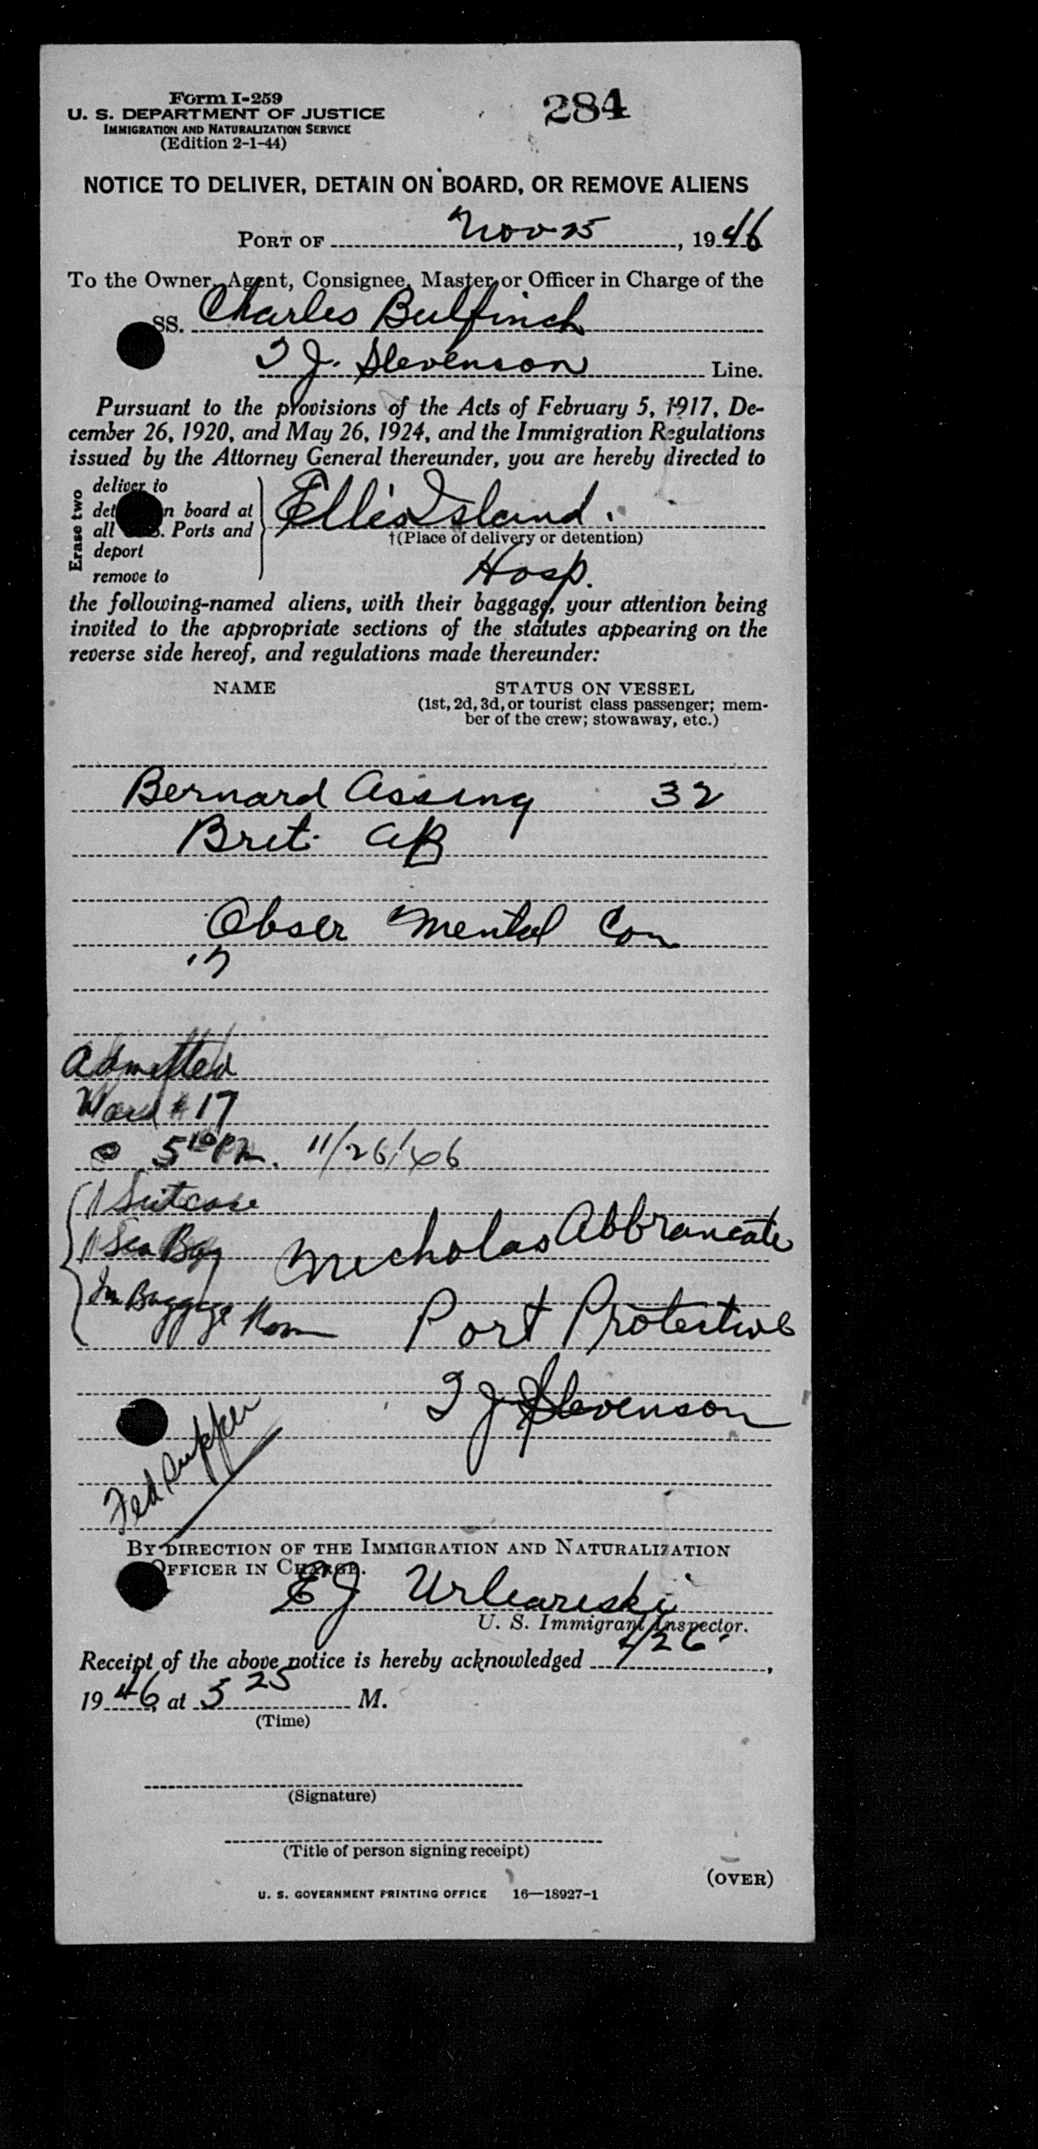 Form I-259
284
U. S. DEPARTMENT OF JUSTICE
IMMIGRATION AND NATURALIZATION SERVICE
(Edition 2-1-44)
NOTICE TO DELIVER, DETAIN ON BOARD, OR REMOVE ALIENS
PORT OF Nov 25, 1946
To the Owner, Agent, Consignee, Master or Officer in Charge of the
SS. Charles Bulfinch
T J. Stevenson Line.
Pursuant to the provisions of the Acts of February 5, 1917, De-
cember 26, 1920, and May 26, 1924, and the Immigration Regulations
issued by the Attorney General thereunder, you are hereby directed to
Erase two
deliver to
det n board at
all S. Ports and
deport
remove to
Ellis Island.
†(Place of delivery or detention)
Hosp.
the following-named aliens, with their baggage, your attention being
invited to the appropriate sections of the statutes appearing on the
reverse side hereof, and regulations made thereunder:
NAME
STATUS ON VESSEL
(1st, 2d, 3d, or tourist class passenger; mem-
ber of the crew; stowaway, etc.)
Bernard Assing 32
Brit. AB
Obser Mental Con
17
Admitted
Ward # 17
@ 5 10 PM. 11/26/46
1 Suitcase
1 Sea Bag
In Baggage Room
Micholas Abbrancate
Port Protective
T J Stevenson
Fed Supper
BY DIRECTION OF THE IMMIGRATION AND NATURALIZATION
OFFICER IN CHARGE.
E J
U. S. Immigrant Inspector.
Receipt of the above notice is hereby acknowledged /26,
1946, at 5 25 M.
(Time)
(Signature)
(Title of person signing receipt)
(OVER)
U. S. GOVERNMENT PRINTING OFFICE 16—18927-1